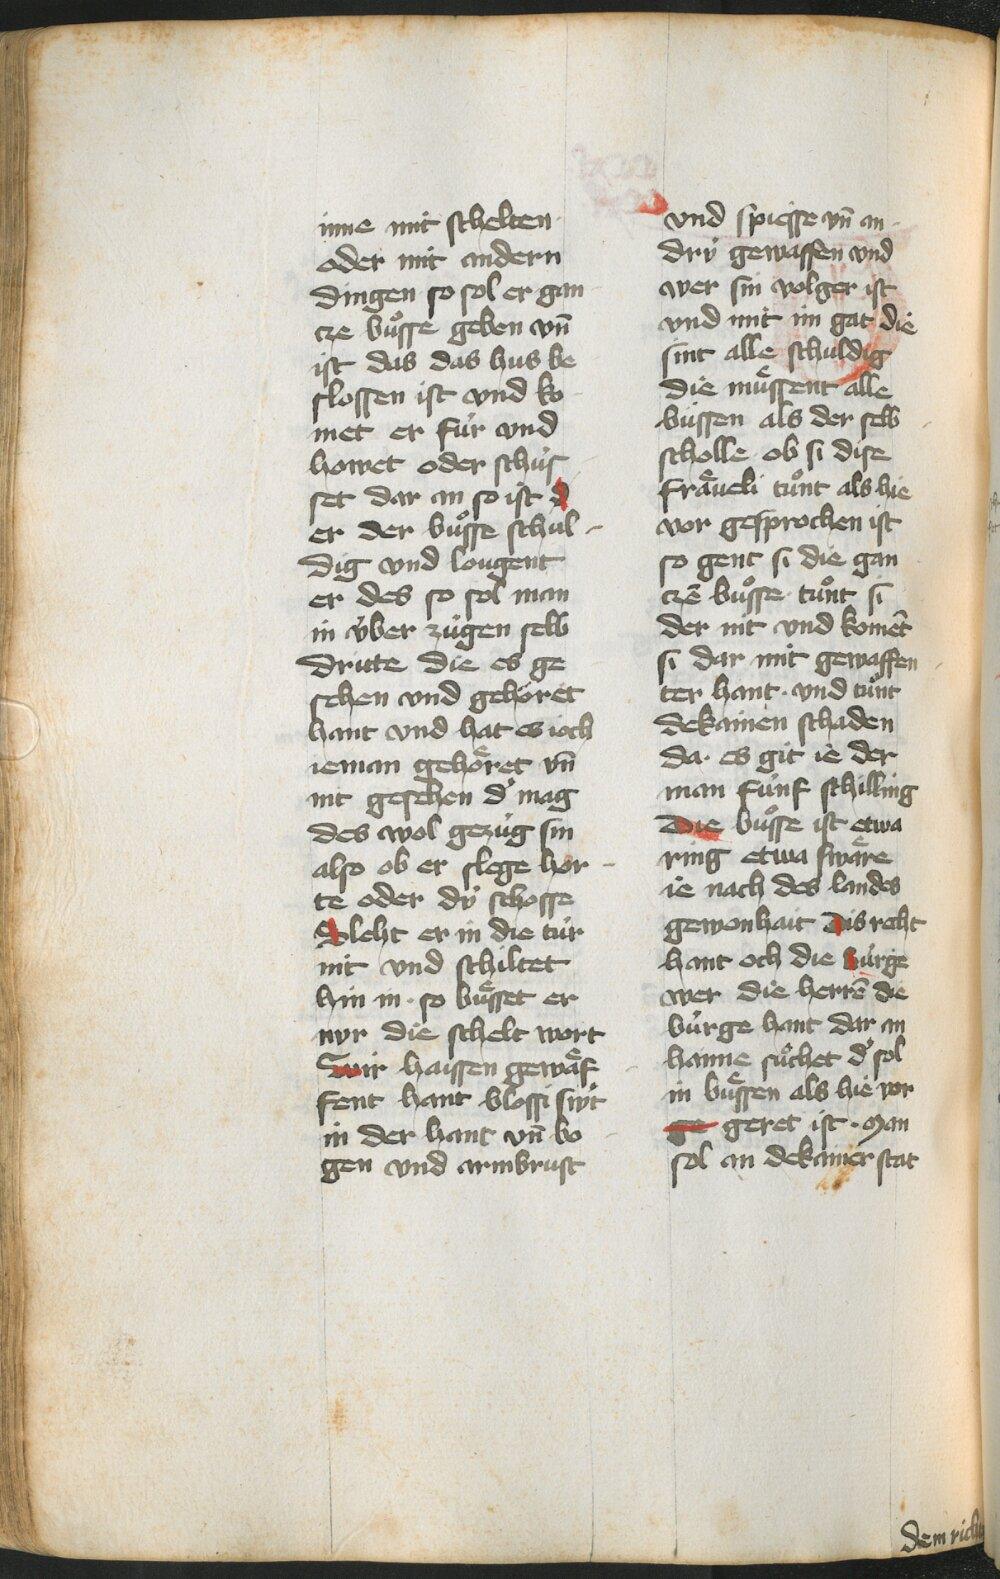 inne mit schelten
oder mit andern
dingen so sol er gan
cze buͦsse geben vn̄
ist das das hus be
slossen ist vnd ko
met er für vnd
howet oder schüs
set dar an so ist d
er der buͦsse schul
dig vnd lougent
er des so sol man
in v̈ber zügen selb
dritte die es ge
sehen vnd gehöret
hant vnd hat es ioch
ieman gehoͤret vn̄
nit gesehen d' mag
des wol gezüg sin
also ob er slege hor
te oder dÿ schosse
Sleht er in die tür
nit vnd schiltet
hin in · so buͤsset er
nyr die schelt wort
Wir haissen gewaͤf
fent hant blossi swt
in der hant vn̄ bo
gen vnd armbrust
vnd spiesse vn̄ an
drÿ gewaffen vnd
wer sin volger ist
vnd mit im gat die
sint alle schuldig
die muͤssent alle
büssen als der selb
scholle ob si dise
fraͤueli tuͦnt als hie
vor gesprochen ist
so gent si die gan
czē buͦsse · tuͦnt si
der nit vnd komēt
si dar mit gewaffen
ter hant · vnd tuͦnt
dekainen schaden
da · es git ie der
man fünf schilling
Die buͦsse ist etwa
ring etwa swaͤre
ie nach des landes
gewonhait Dis reht
hant och die bürge
wer die herrē die
bürge hant dar an
hanne suͤchet d' sol
in buͤssen als hie vor
ge geret ist · Man
sol an dekainer stat
dem richt